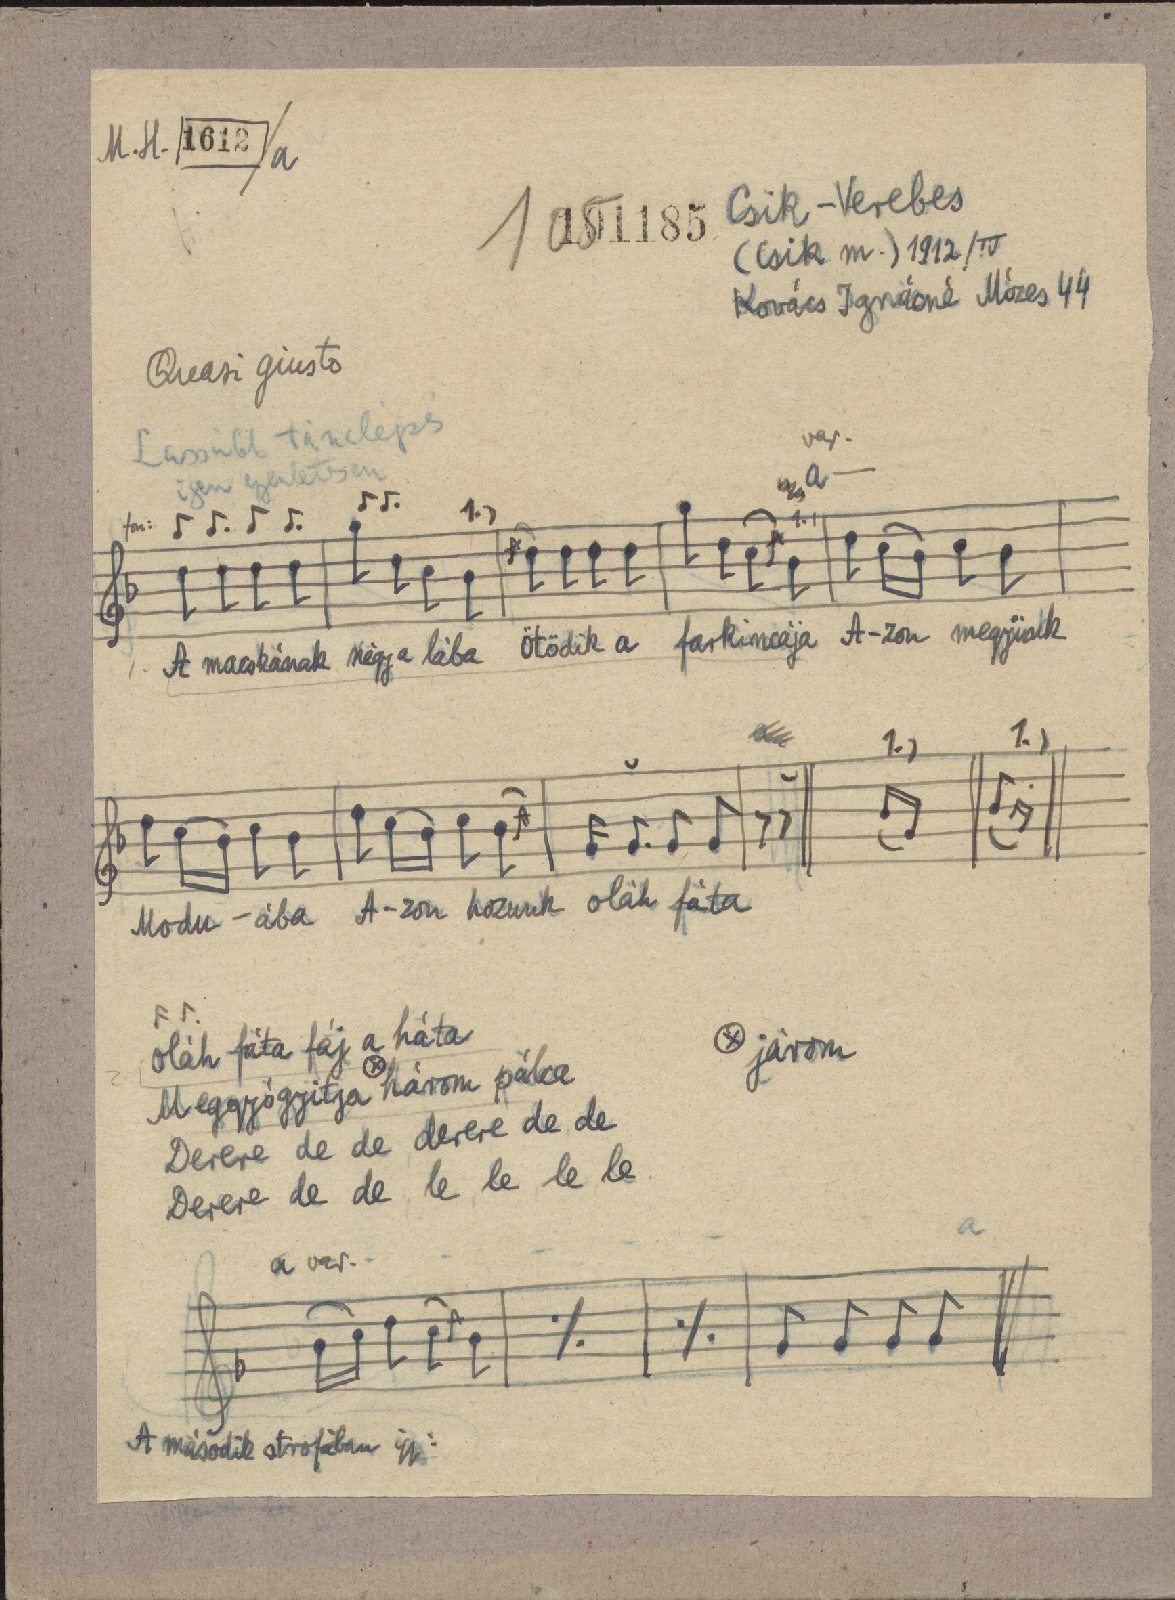 M.H. 1612/a
101185
Csik-Verebes
(Csik m.) 1912/IV
Kovács Ignácné Mózes 44
Quasi giusto
Lassúbb tánclépés
igen egyenletesen
var.
a
fon:
1.)
1.)
1. A macskának négy a lába ötödik a farkincája A-zon megyünk
1.) 1.)
Modu-ába A-zon hozunk oláh fáta
2. oláh fáta fáj a háta
Meggyógyitja ⓧ három pálca
ⓧ járom
Derere de de derere de de
Derere de de le le le le
a
a var.
A második strofában így: